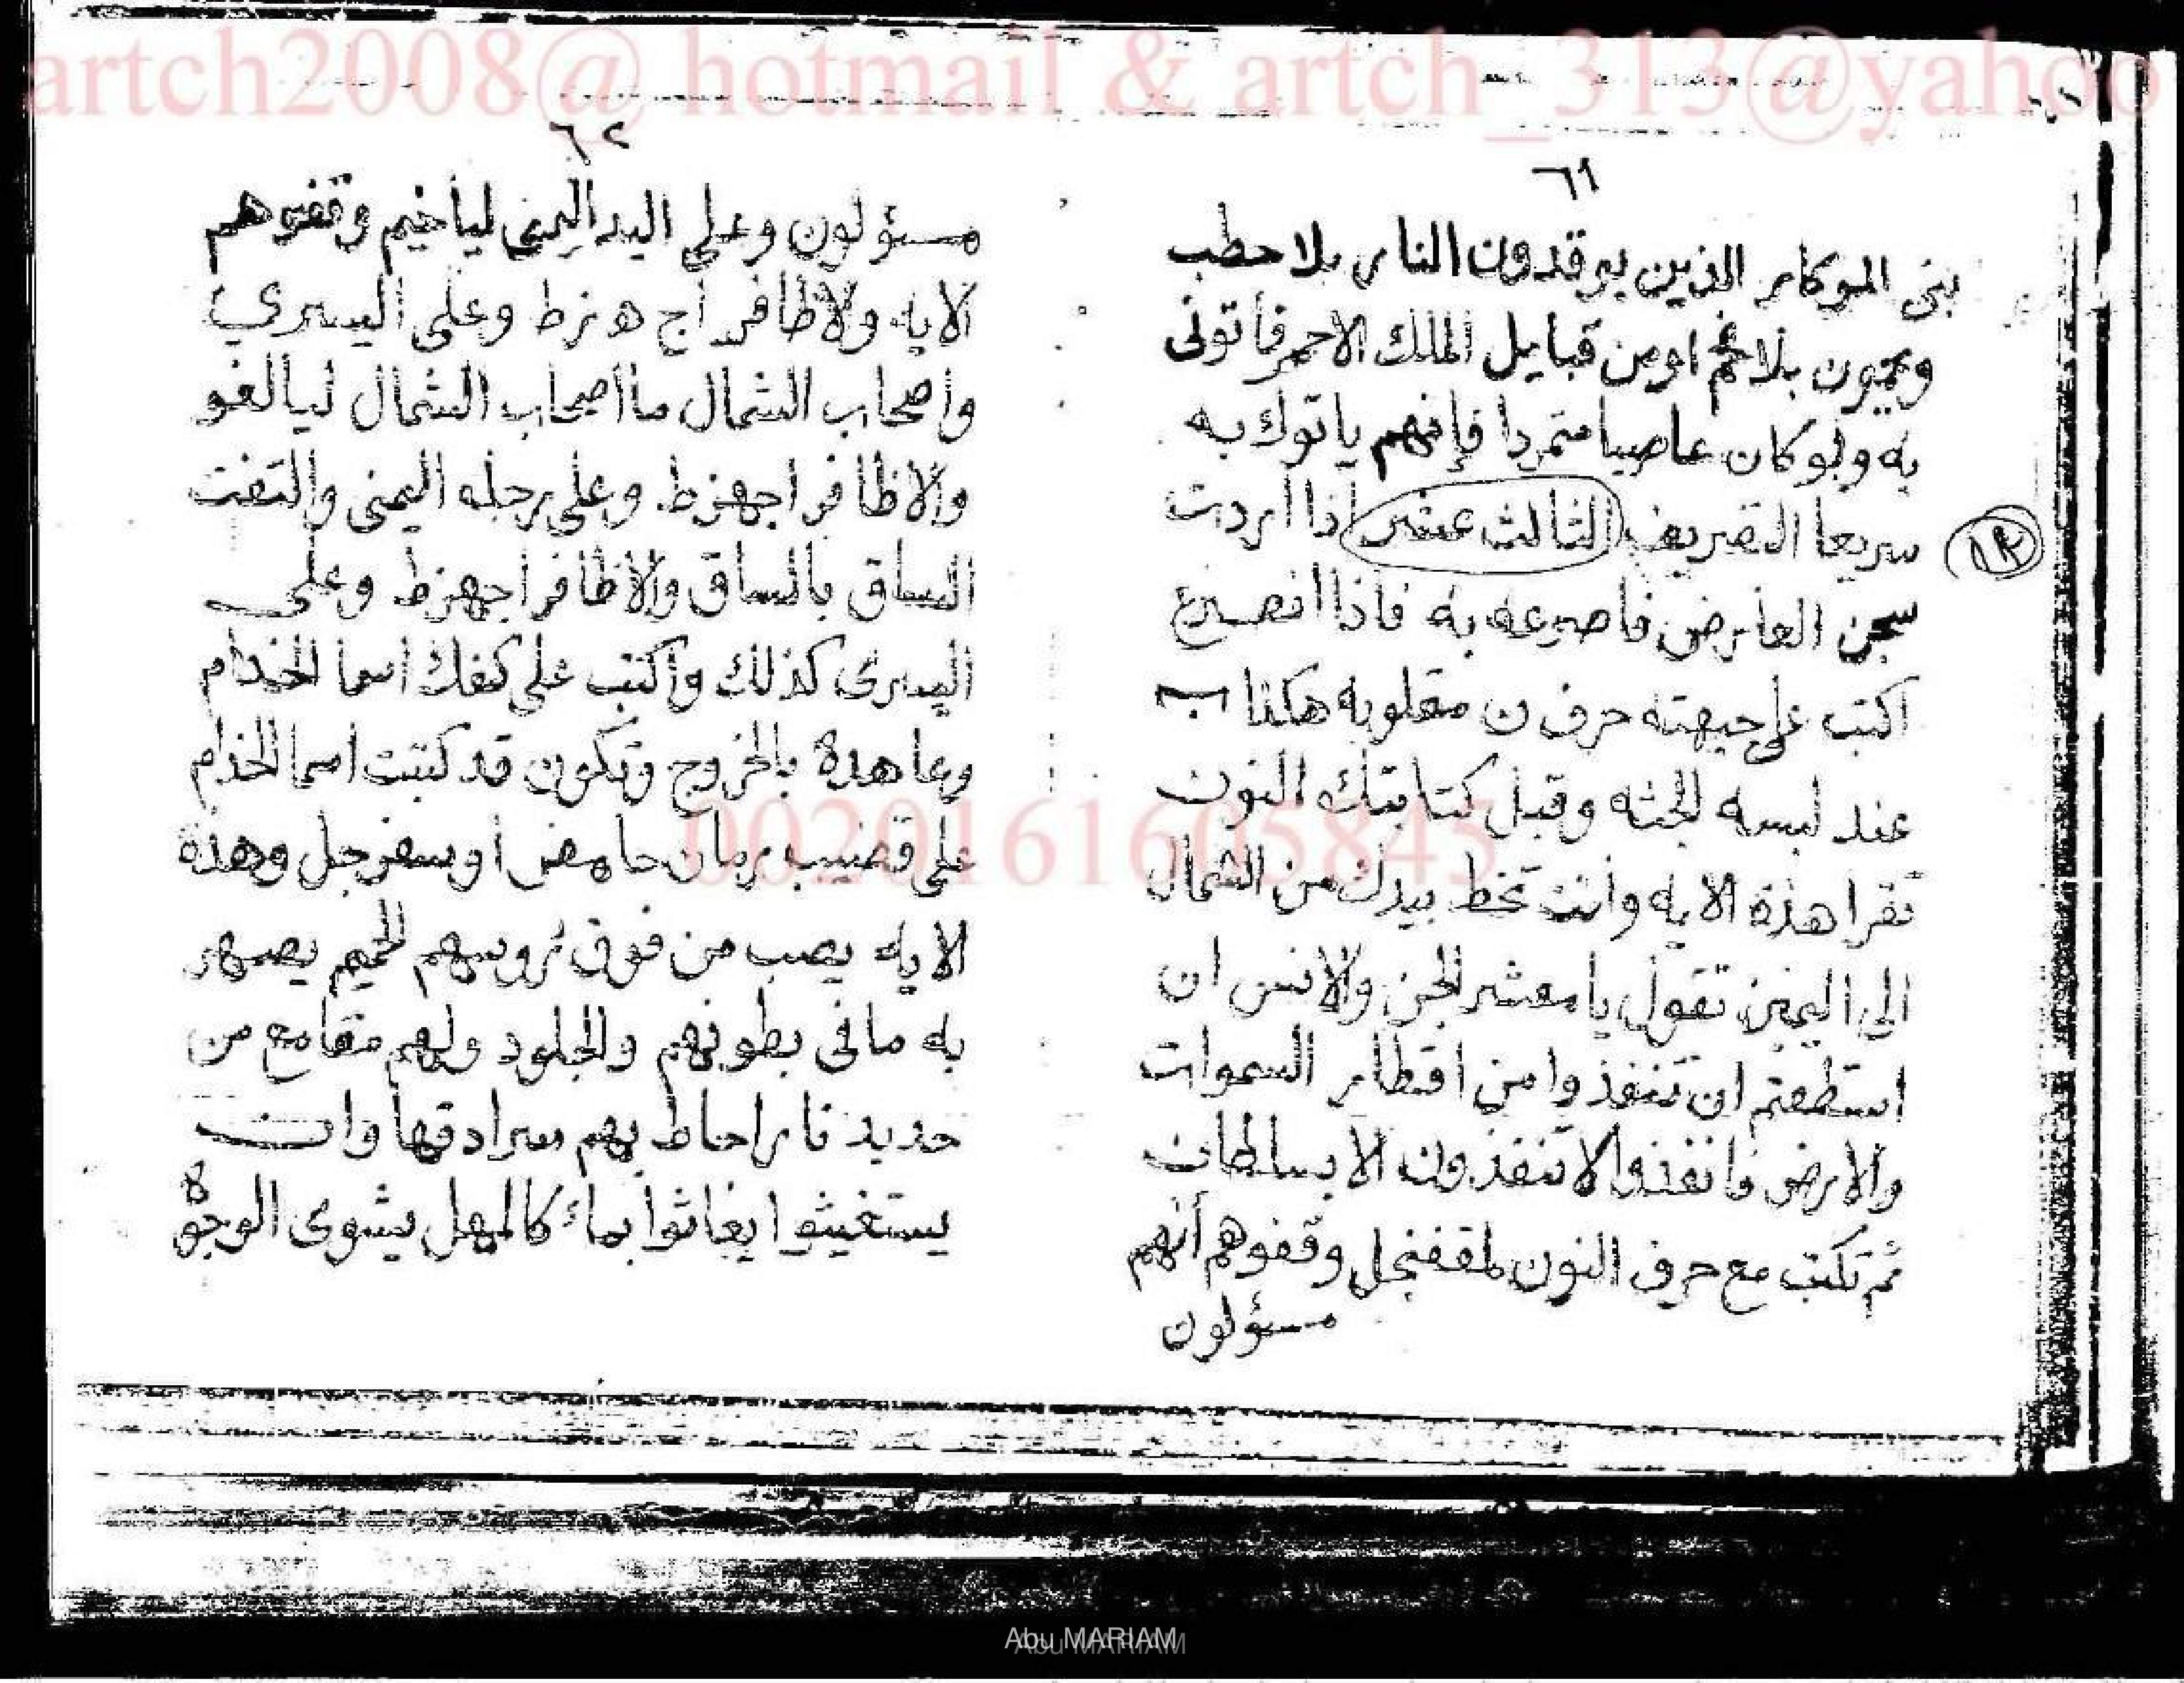 artch2008@ hotmail & artch_313@yahoo
٦١
بنى الموكار الذين يوقدون النار بلا حطب
ويميرون بلا فحم او من قبايل الملك الاحمر فأتونى
به ولو كان عاصيا متمردا فإنهم ياتوك به
سريعا التصريف الثالث عشر اذا اردت
١٣
سجن العارض فاصرعه به فاذا انصرع
اكتب على جبهته حرف ن مقلوبه هكذا
عند لبسه الجثه وقبل كتابتك النون
تقرا هذه الايه وأنت تخط بيدك من الشمال
الى اليمين تقول يا معشر الجن والانس ان
استطعتم ان تنفذوا من اقطار السموات
والارض فانفذوا لا تنفذون الا بسلطان
ثم تكتب مع حرف النون لمقفنجل وقفوهم أنهم
مسؤلون
٦٢
مسؤلون وعلى اليد اليمنى لياخيم وقفوهم
الايه ولاظافر أج هزط وعلى اليسرى
واصحاب الشمال ما أصحاب الشمال ليالغو
والاظافر اجهزط وعلى رجله اليمنى والتفت
الساق بالساق والاظافر اجهزط وعلى
اليسرى كذلك واكتب على كفك اسما الخدام
وعاهدة بالخروج وتكون قد كتبت اسما الخدام
على قضيب رمان حامض أو سفرجل وهذة
الايه يصب من فوق رؤسهم الحميم يصهر
به ما فى بطونهم والجلود ولهم مقامع من
حديد نارا احاط بهم سرادقها وان
يستغيثوا يغاثوا بماء كالمهل يشوى الوجوه
0020161605845
Abu MARIAM